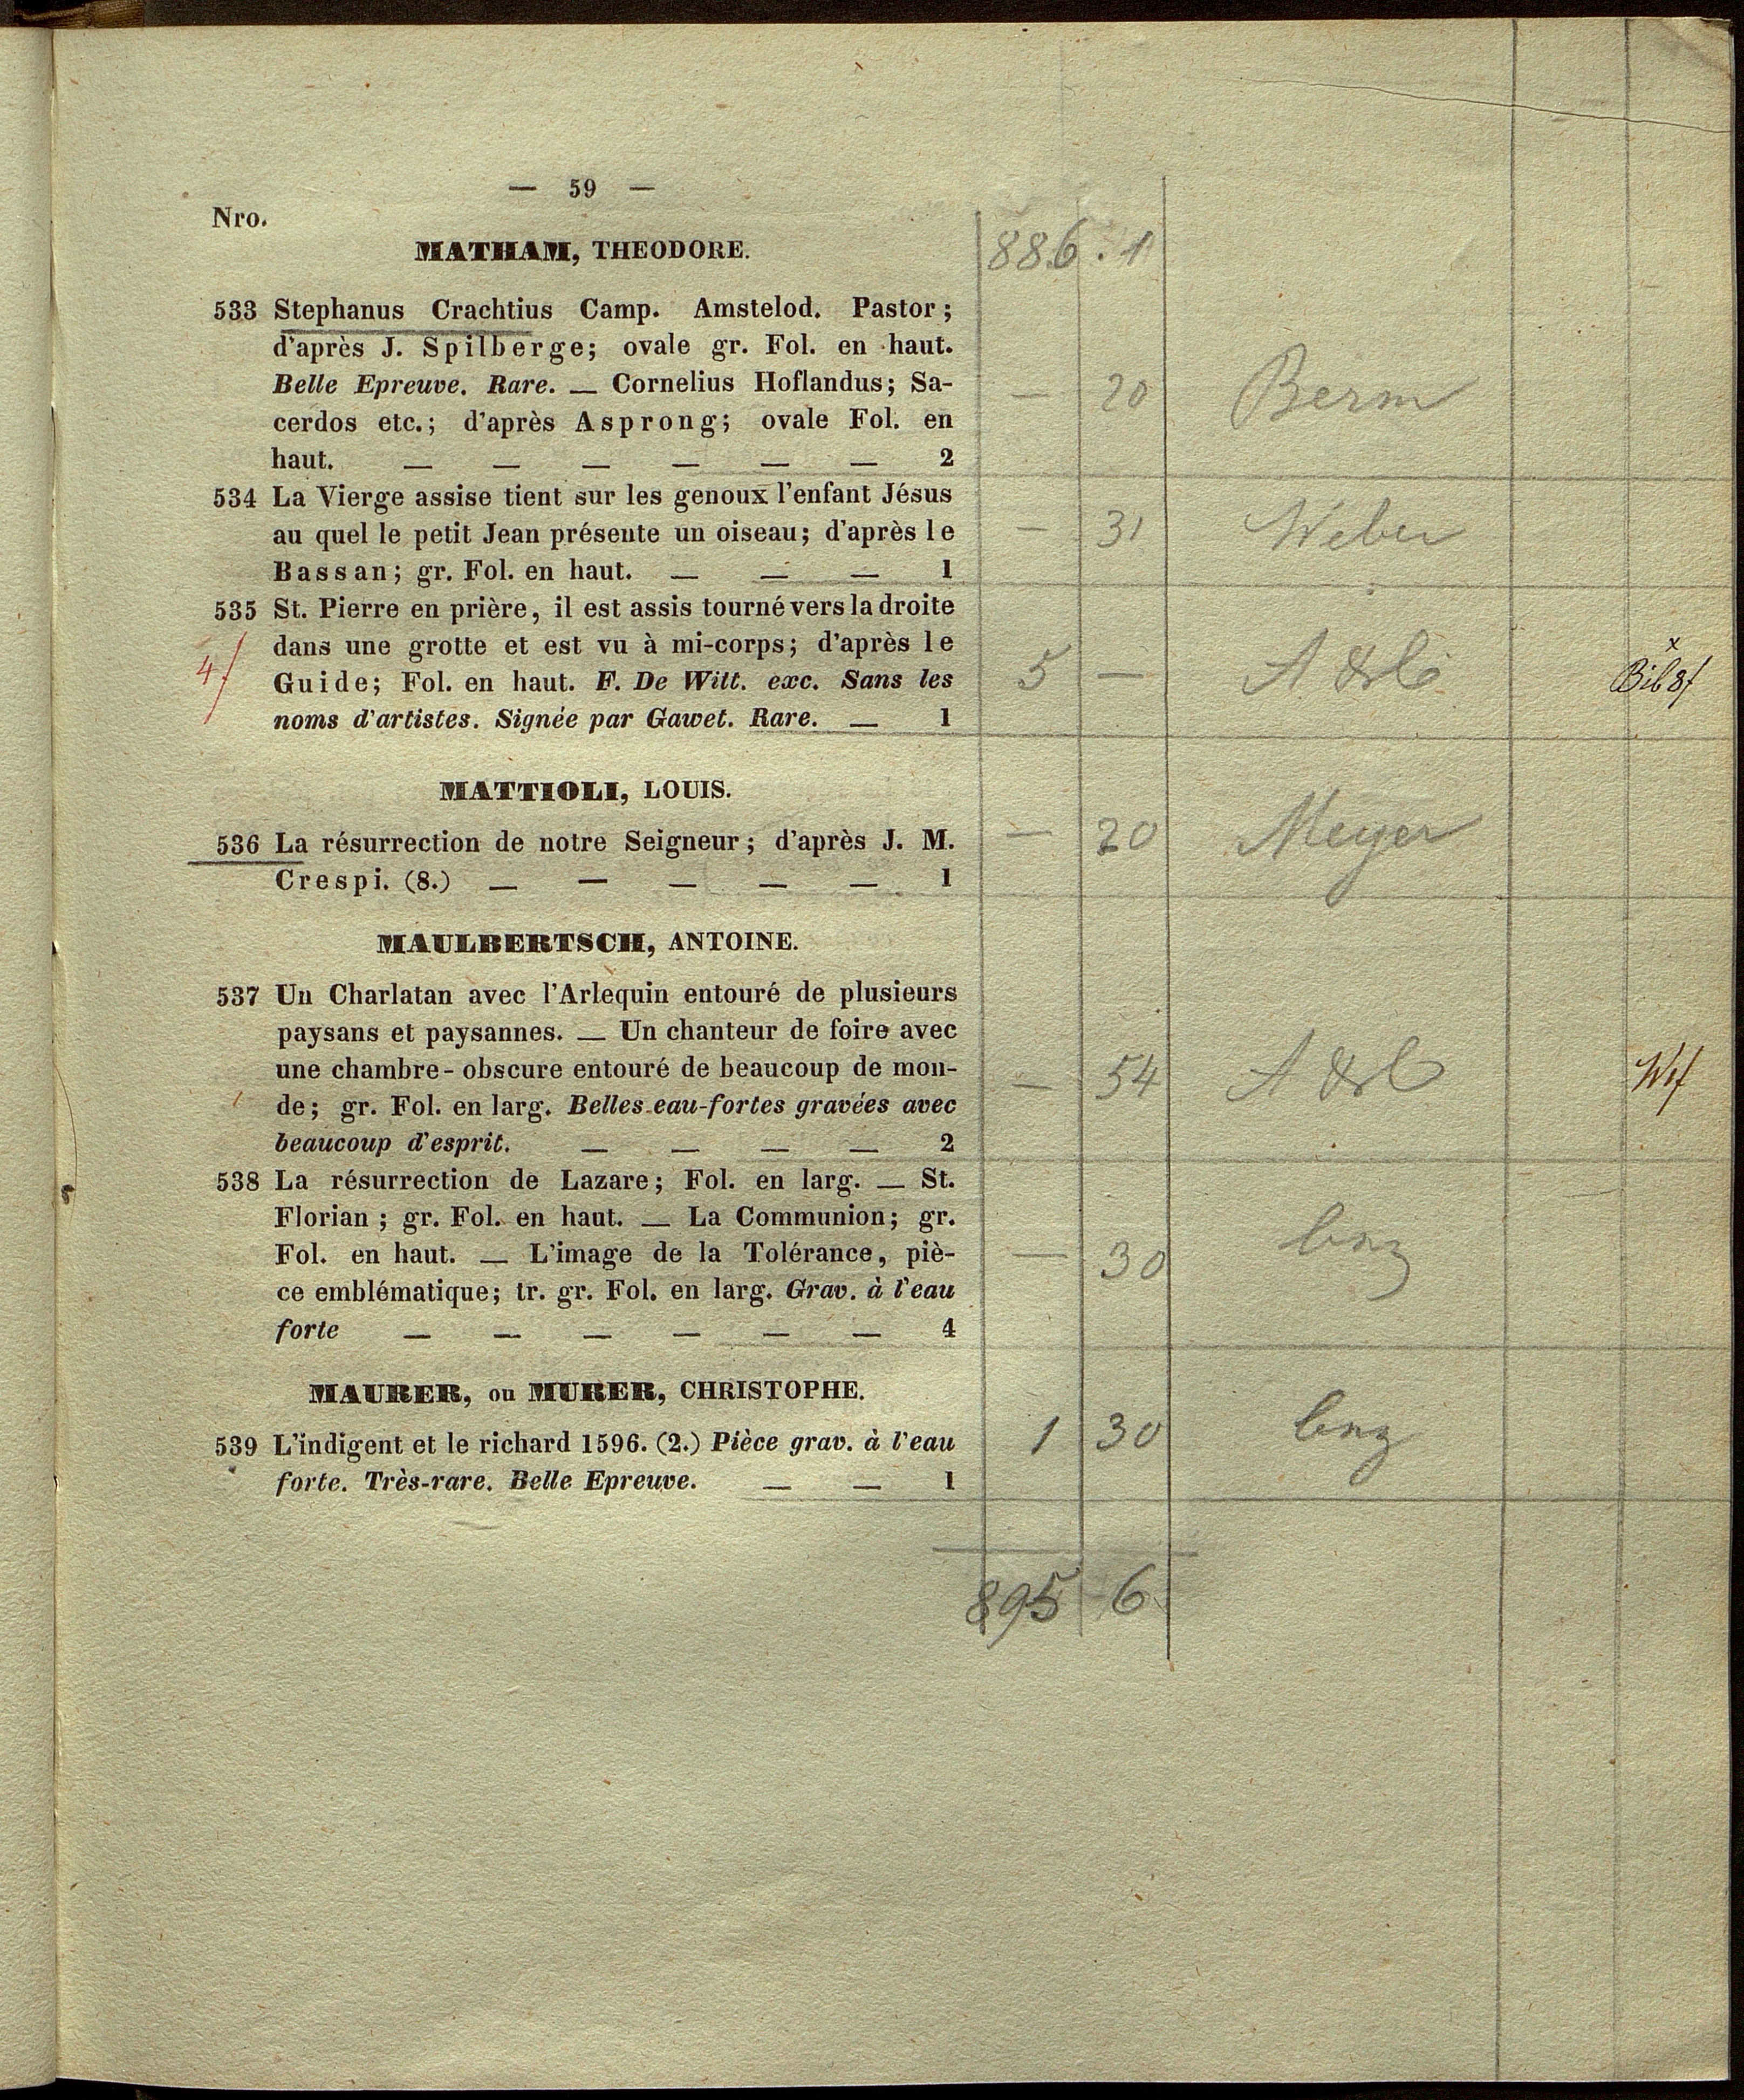 — 59 —
Nro.
MATHAM, THEODORE.
886 . 1
533 Stephanus Crachtius Camp. Amstelod. Pastor;
d'après J. Spilberge; ovale gr. Fol. en haut.
Belle Epreuve. Rare. — Cornelius Hoflandus; Sa-
cerdos etc.; d'après Asprong; ovale Fol. en
haut. — — — — — — 2
— 20 Berm
534 La Vierge assise tient sur les genoux l'enfant Jésus
au quel le petit Jean présente un oiseau; d'après le
Bassan; gr. Fol. en haut. — — — 1
— 31 Weber
535 St. Pierre en prière, il est assis tourné vers la droite
dans une grotte et est vu à mi-corps; d'après le
Guide; Fol. en haut. F. De Witt. exc. Sans les
noms d'artistes. Signée par Gawet. Rare. — 1
4f
5 —
x
Bib 8f
MATTIOLI, LOUIS.
536 La résurrection de notre Seigneur; d'après J. M.
Crespi. (8.) — — — — — 1
— 20 Meyer
MAULBERTSCH, ANTOINE.
537 Un Charlatan avec l'Arlequin entouré de plusieurs
paysans et paysannes. — Un chanteur de foire avec
une chambre-obscure entouré de beaucoup de mon-
de; gr. Fol. en larg. Belles eau-fortes gravées avec
beaucoup d'esprit. — — — — 2
— 54
538 La résurrection de Lazare; Fol. en larg. — St.
Florian; gr. Fol. en haut. — La Communion; gr.
Fol. en haut. — L'image de la Tolérance, piè-
ce emblématique; tr. gr. Fol. en larg. Grav. à l'eau
forte — — — — — — 4
— 30
MAURER, ou MURER, CHRISTOPHE.
539 L'indigent et le richard 1596. (2.) Pièce grav. à l'eau
forte. Très-rare. Belle Epreuve. — — 1
1 30
895 6